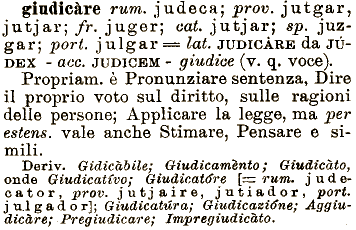 giudicàre rum. judeca; prov. jutgar,
jutjar; fr. juger; cat. jutjar; sp. juz-
gar; port. julgar = lat. JUDICÀRE da JÚ-
DEX - acc. JUDICEM - giudice (v. q. voce).
Propriam. è Pronunziare sentenza, Dire
il proprio voto sul diritto, sulle ragioni
delle persone; Applicare la legge, ma per
estens. vale anche Stimare, Pensare e si-
mili.
Deriv. Gidicàbile; Giudicamènto; Giudicàto,
onde Giudicatívo; Giudicatóre [= rum. jude-
cator, prov. jutjaire, jutiador, port.
julgador]; Giudicatúra; Giudicazióne; Aggiu-
dicàre; Pregiudicare; Impregiudicàto.